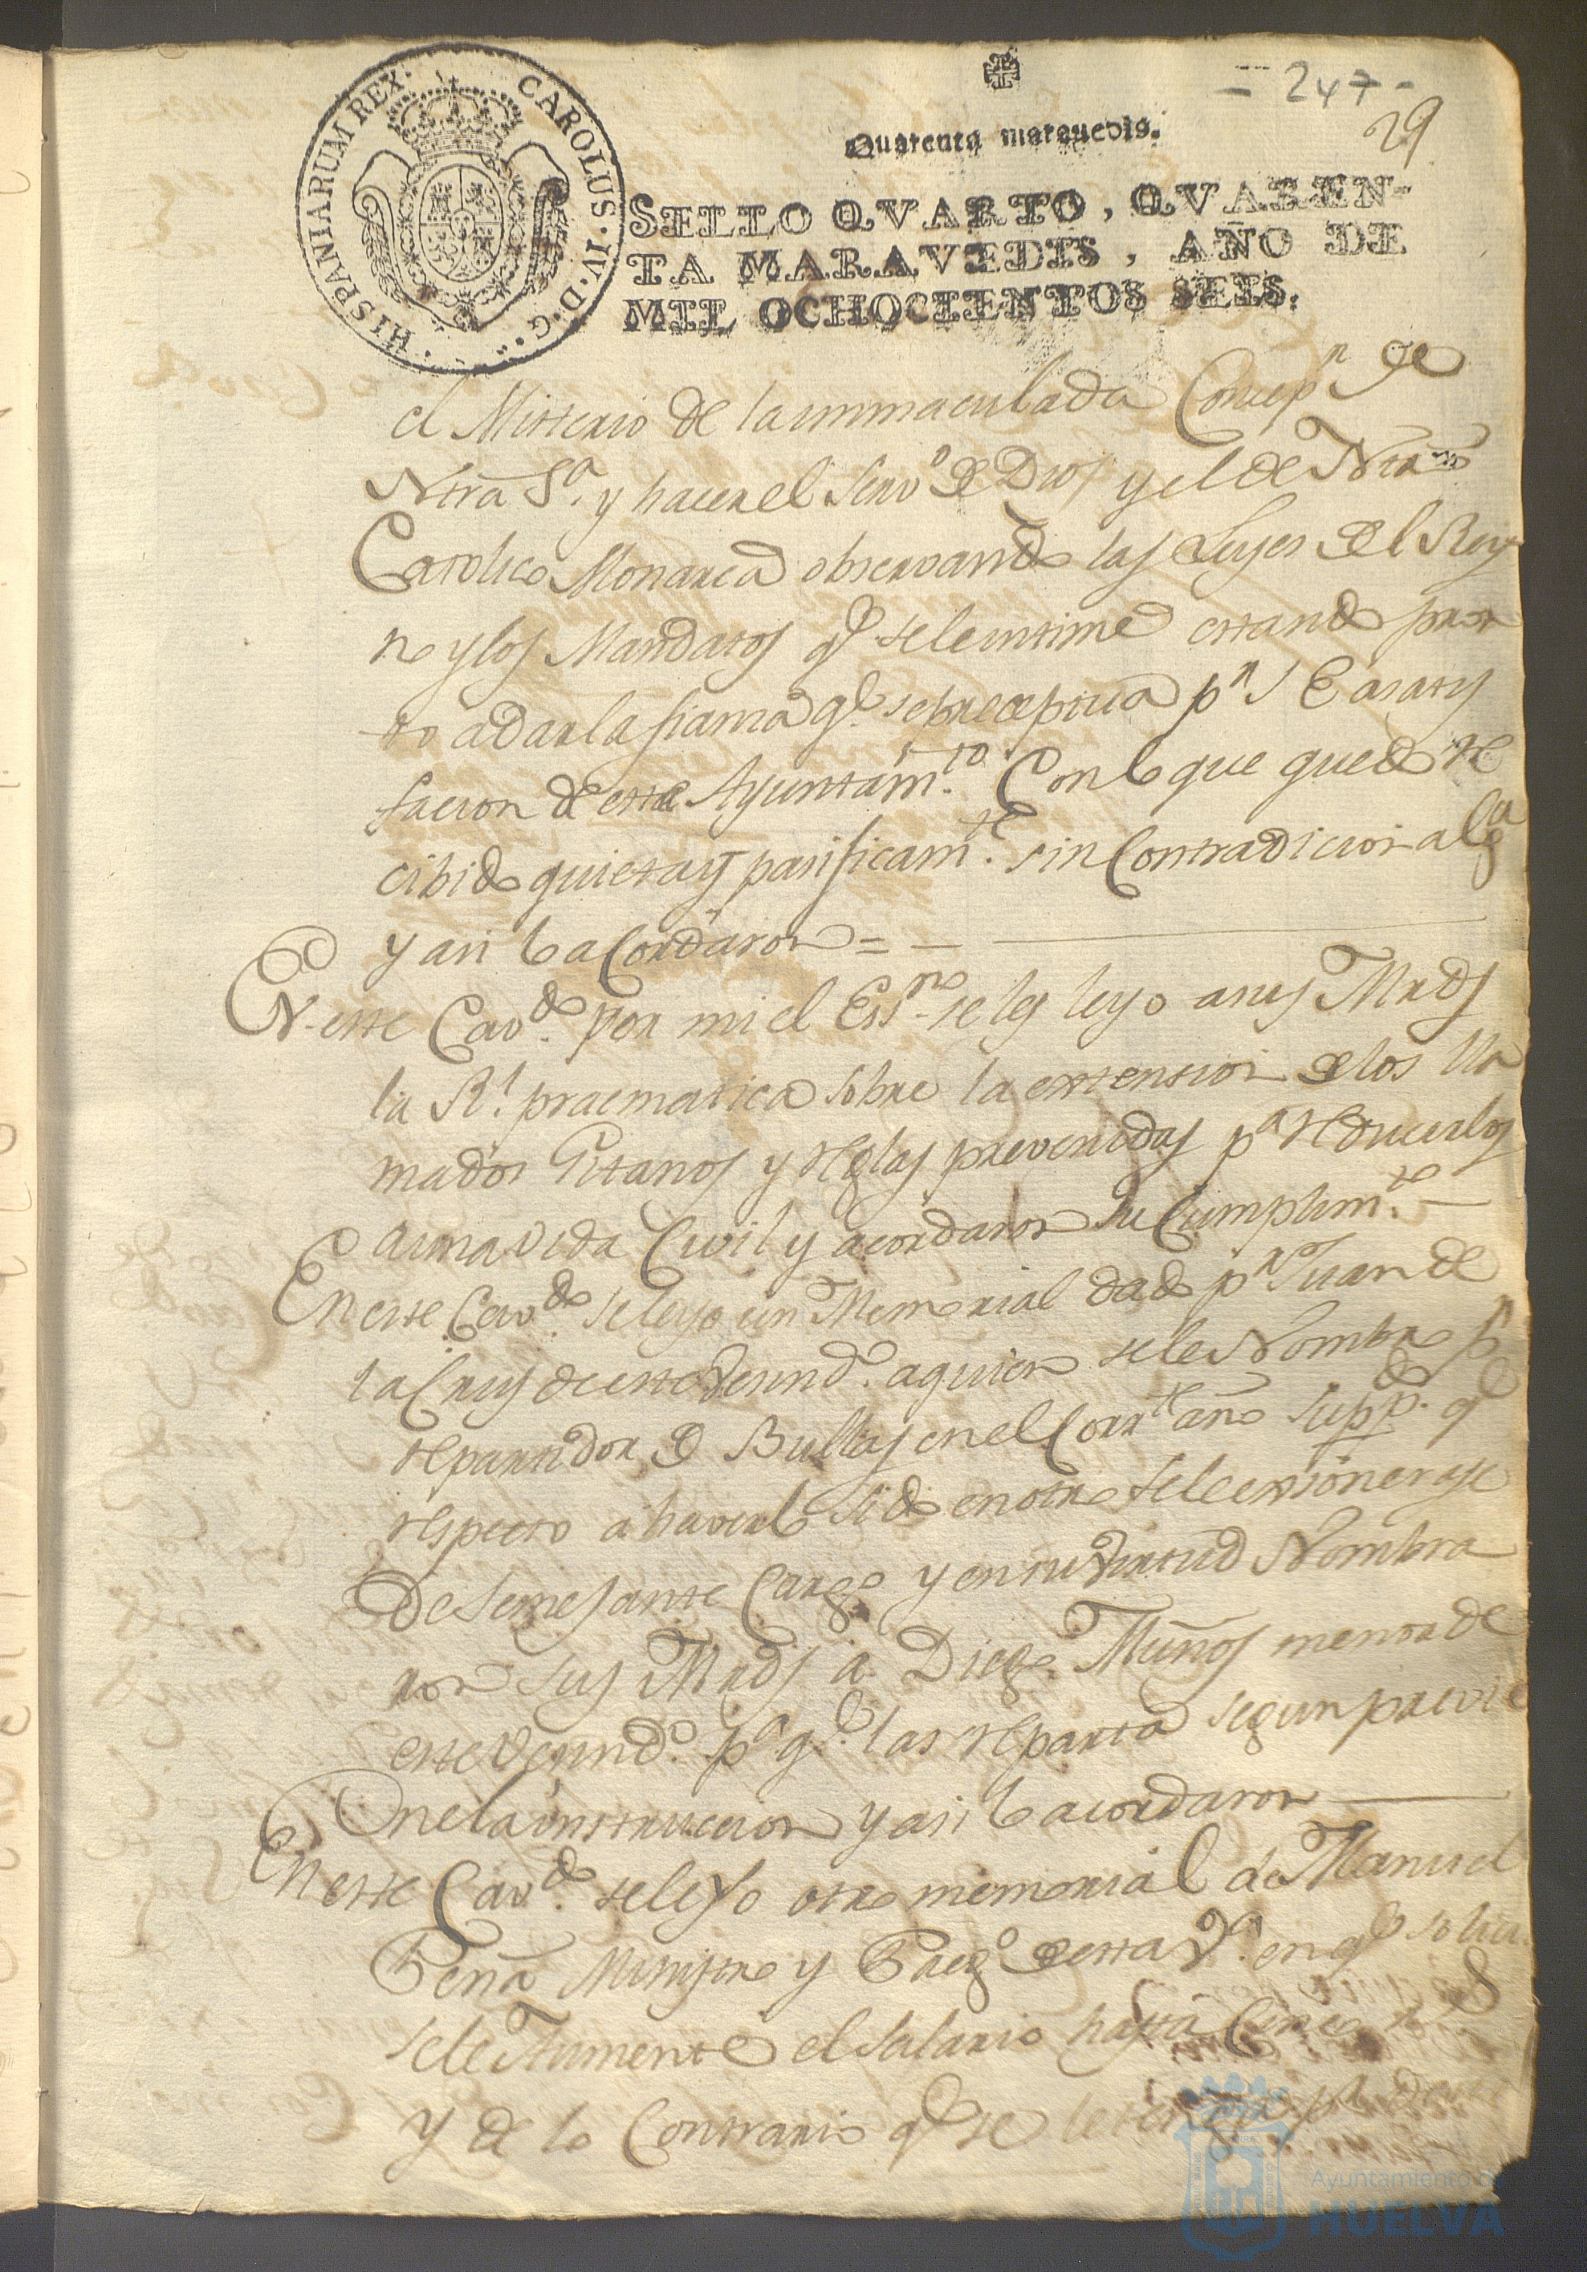 = 247 -
29
Quarenta maravedis.
HISPANIARUM REX. CAROLUS·IV·D·G·
SELLO QVARTO, QVAREN-
TA MARAVEDIS, AÑO DE
MIL OCHOCIENTOS SEIS.
el Misterio de la inmaculada Concepn de
Ntra Sa. y hacer el servo de Dios y el de Ntro
Catolico Monarca observando las Leyes del Rey
no y los Mandatos qe se le intime estando pron
to a dar la fianza qe. se preceptua pr
facion de este Ayuntamto. Con lo que quedo re
cibido quieta y pasificamte. sin contradicion alga
y asi lo acordaron = —
En este Cavdo. por mi el Essno se les leyo a sus Mrds
la Rl. pracmatica sobre la extension de los lla
mados Gitanos y reglas prevenidas pa reducirlos
a una vida Civil y acordaron su Cumplimto. —
En este Cavdo. se leyo un Memorial dado pr Juan de
la Crus de este Vesindo. a quien se le Nombro pr
repartidor de Bullas en el Corrte año suppdo. qe
respecto a haverlo sido en otro se le exsonerase
de semejante Cargo y en su virtud Nombra
ron sus Mrds a Diego Muños menor de
este Vesindo. pa qe. las reparta segun previe
ne la instruccion y asi lo acordaron —
En este Cavdo. se leyo otro memorial de Manuel
Peña Ministro y Prego de esta Va. en qe solici
se le Aumente el salario hasta Cinco rs
y de lo Contrario qe se le
Ayuntamiento de
HUELVA